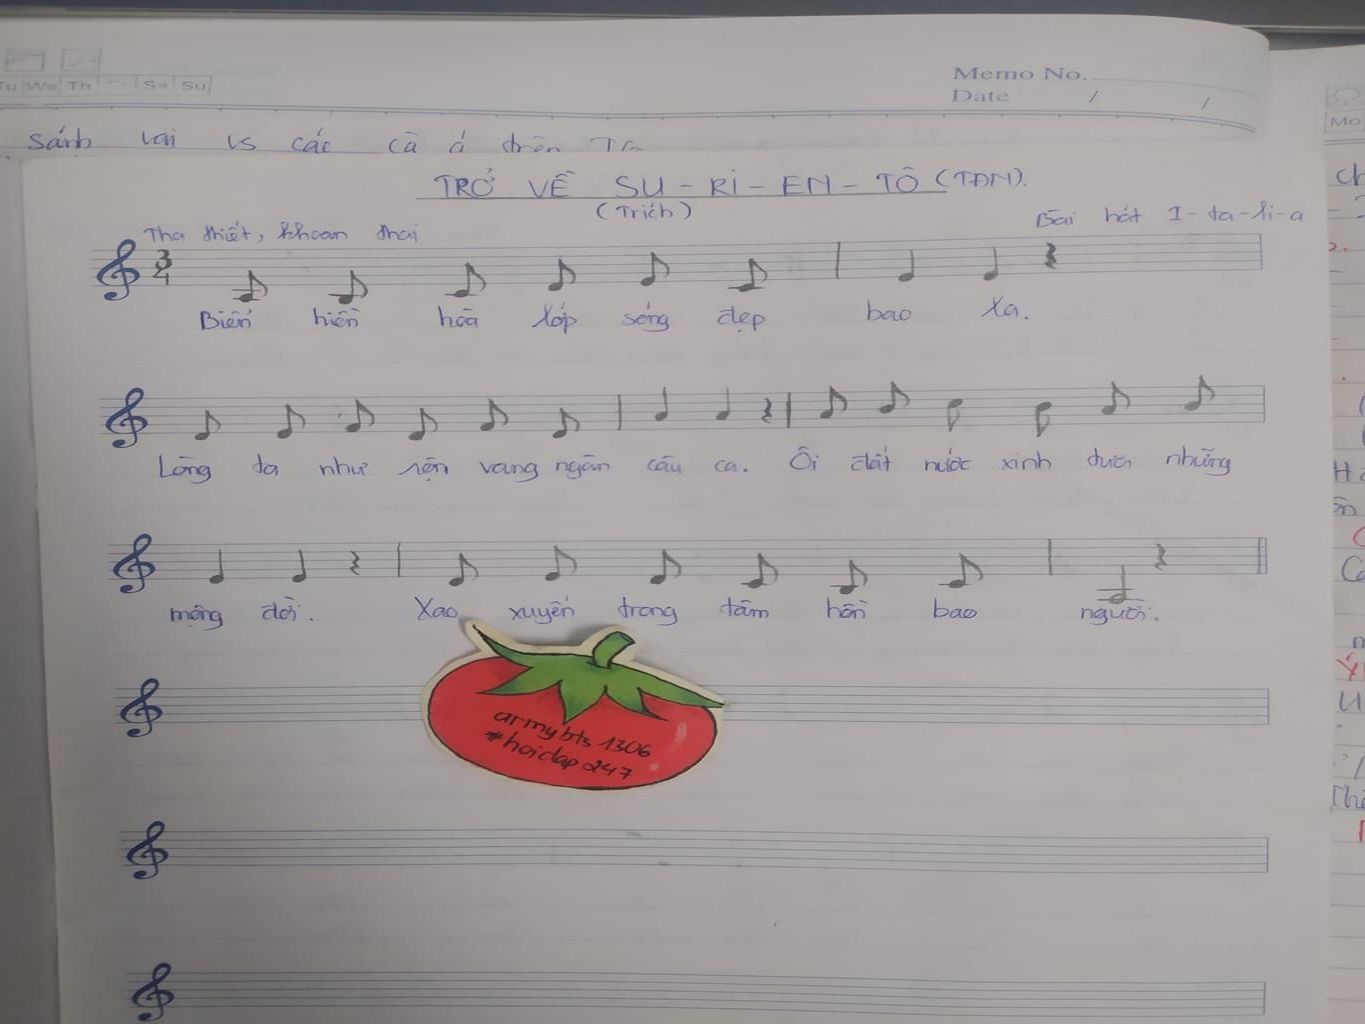 Tu We Th Sa Su
Memo No.
Date / /
sánh lại vs các
TRỞ VỀ SU-RI-EN-TÔ (TĐN).
(Trích)
Tha thiết, khoan thai
Bài hát I-ta-li-a
3
4
Biển hiền hòa lớp sóng đẹp bao xa.
Lòng ta như rộn vang ngàn câu ca. Ôi đất nước xinh tươi những
mộng đời. Xao xuyến trong tâm hồn bao người.
armybts 1306
#hoidap247
Mo